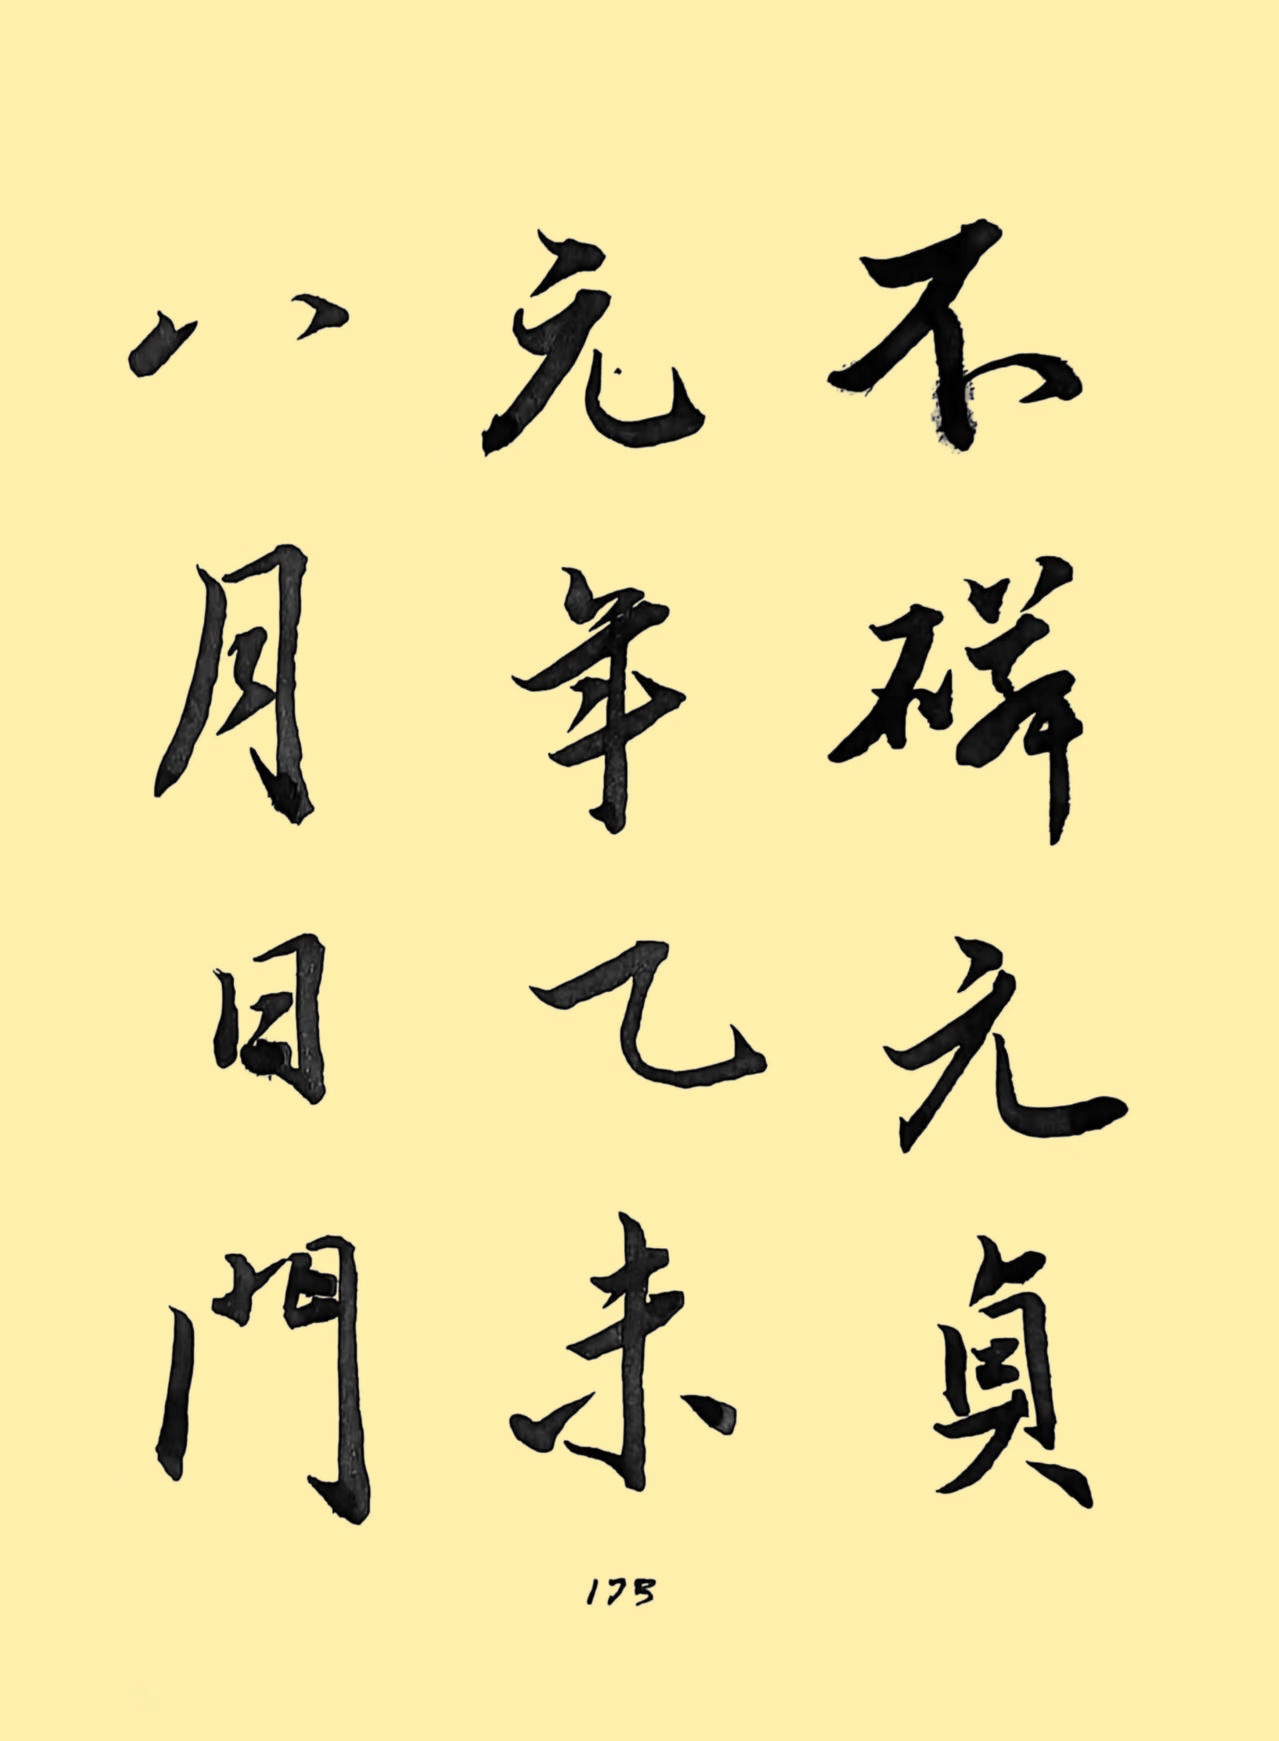 不磷元貞
元年乙未
八月日門
173